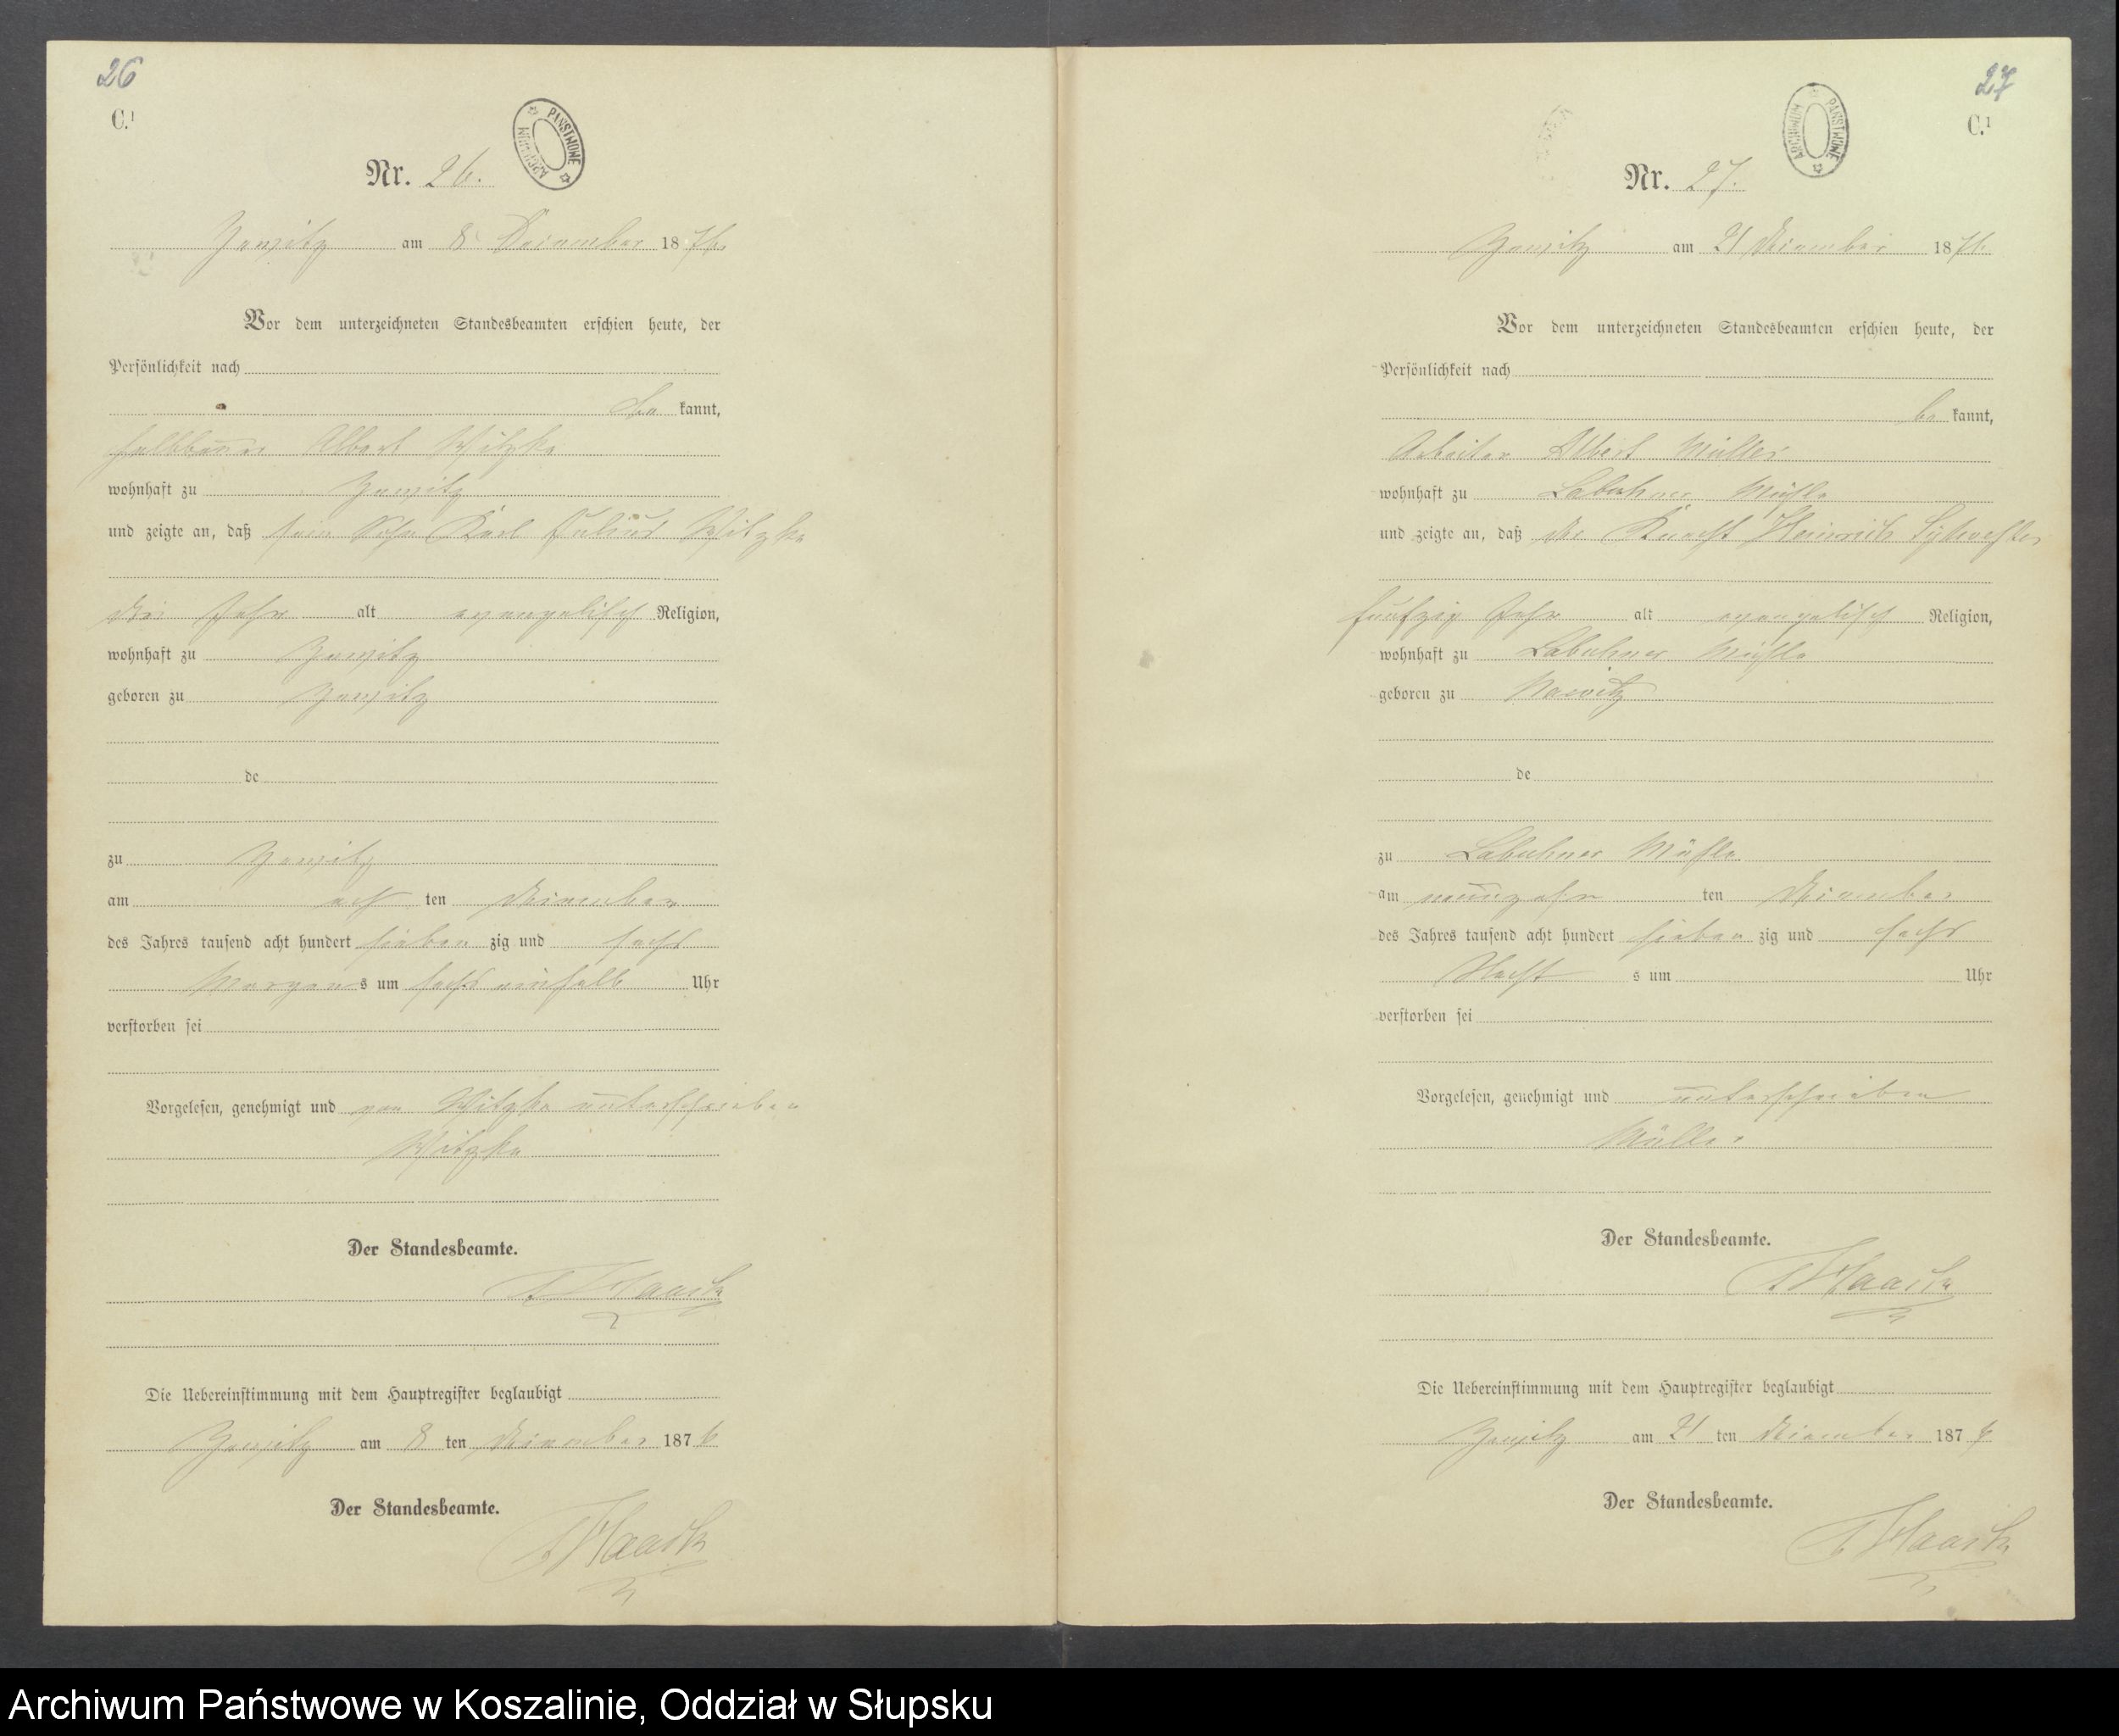 26
C.¹
Nr. 26.
ARCHIWUM PAŃSTWOWE
am 8 December 1876
Vor dem unterzeichneten Standesbeamten erschien heute, der
Persönlichkeit nach
be kannt,
Albert Witzke
wohnhaft zu
und zeigte an, daß sein Sohn Karl Julius Witzke
drei Jahr alt evangelisch Religion,
wohnhaft zu
geboren zu
de
zu
am acht ten December
des Jahres tausend acht hundert sieben zig und sechs
Morgen s um sechs einhalb Uhr
verstorben sei
Vorgelesen, genehmigt und von Witzke unterschrieben
Witzke
Der Standesbeamte.
Die Uebereinstimmung mit dem Hauptregister beglaubigt
am 8 ten December 1876
Der Standesbeamte.
27
C.¹
Nr. 27.
ARCHIWUM PAŃSTWOWE
am 21 December 1876
Vor dem unterzeichneten Standesbeamten erschien heute, der
Persönlichkeit nach
be kannt,
Arbeiter Albert Müller
wohnhaft zu Labuhner Mühle
und zeigte an, daß der Knecht Heinrich
funfzig Jahr alt evangelisch Religion,
wohnhaft zu Labuhner Mühle
geboren zu
de
zu Labuhner Mühle
am neunzehn ten December
des Jahres tausend acht hundert sieben zig und sechs
Nacht s um Uhr
verstorben sei
Vorgelesen, genehmigt und unterschrieben
Müller
Der Standesbeamte.
Die Uebereinstimmung mit dem Hauptregister beglaubigt
am 21 ten December 1876
Der Standesbeamte.
Archiwum Państwowe w Koszalinie, Oddział w Słupsku